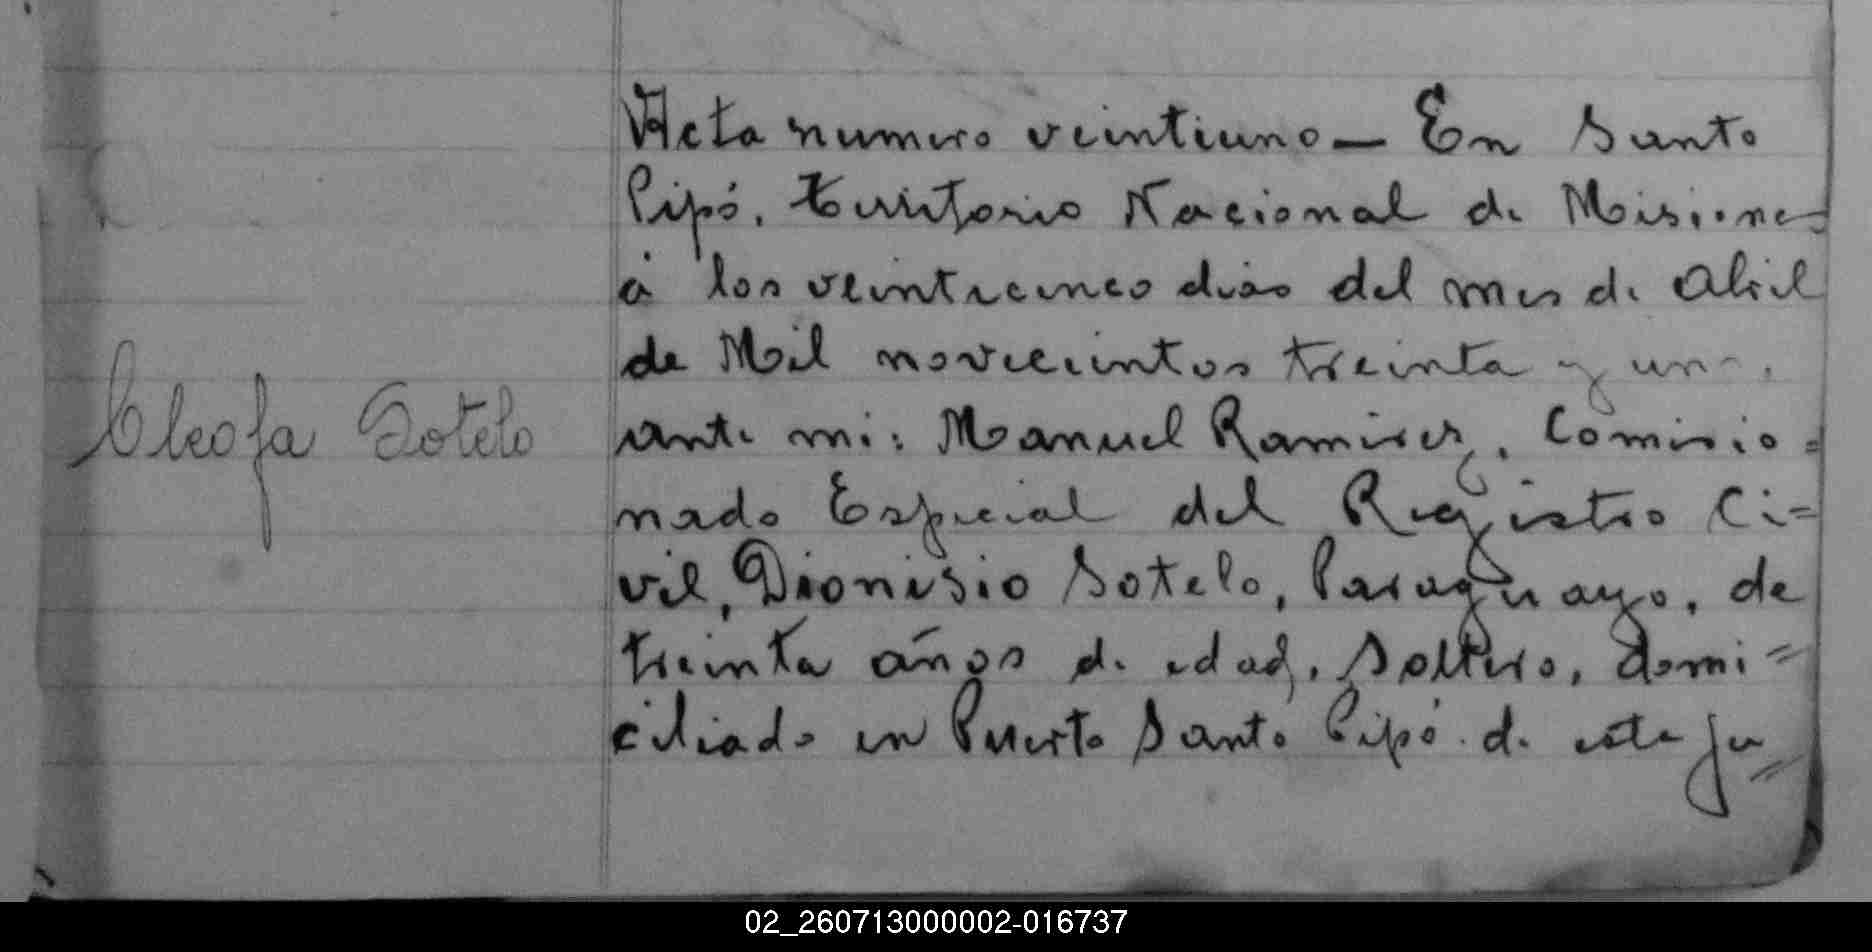 Acta numero veintiuno — En Santo
Pipó, territorio Nacional de Misiones
á los veinticinco dias del mes de Abril
de Mil novecientos treinta y uno,
Cleofa Sotelo
ante mi: Manuel Ramirez, Comisio=
nado Especial del Registro Ci=
vil, Dionisio Sotelo, Paraguayo, de
treinta años de edad, soltero, domi=
ciliado en Puerto Santo Pipó de este ju=
02_260713000002-016737